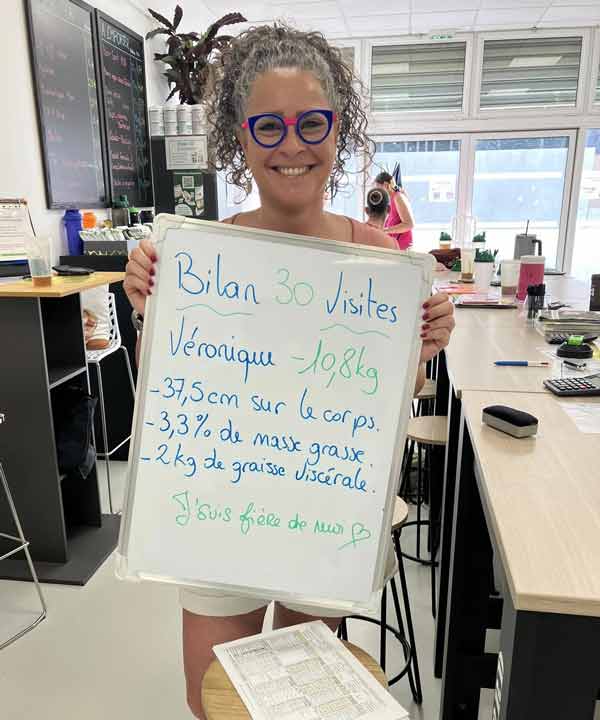 Bilan 30 Visites
Véronique -10,8kg
-37,5cm sur le corps.
-3,3% de masse grasse.
-2kg de graisse viscérale.
J'suis fière de moi